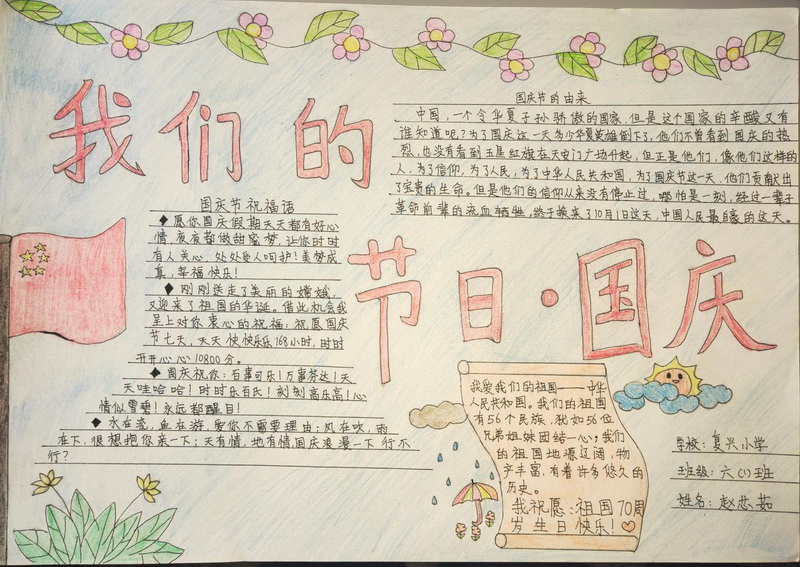 我们的
节日·国庆
国庆节的由来
中国,一个令华夏子孙骄傲的国家,但是这个国家的辛酸又有
谁知道呢?为了国庆这一天多少华夏英雄倒下了,他们不曾看到国庆的热
烈,也没有看到五星红旗在天安门广场升起,但正是他们,像他们这样的
人,为了信仰,为了人民,为了中华人民共和国,为了国庆节这一天,他们贡献出
了宝贵的生命。但是他们的信仰从来没有停止过,哪怕是一刻,经过一辈子
革命前辈的流血牺牲,终于换来了10月1日这天,中国人民最自豪的这天。
国庆节祝福语
◆愿你国庆假期天天都有好心
情,夜夜都做甜蜜梦,让你时时
有人关心,处处受人呵护!美梦成
真,幸福快乐!
◆刚刚送走了美丽的嫦娥,
又迎来了祖国的华诞。借此机会我
呈上对你衷心的祝福:祝愿国庆
节七天,天天快快乐乐168小时,时时
开开心心10800分。
◆国庆祝你:百事可乐!万事芬达!天
天哇哈哈!时时乐百氏!刻刻高乐高!心
情似雪碧!永远都醒目!
◆水在流,血在游,爱你不需要理由;风在吹,雨
在下,很想抱你亲一下;天有情,地有情国庆浪漫一下行不
行?
我爱我们的祖国——中华
人民共和国。我们的祖国
有56个民族,犹如56位
兄弟姐妹团结一心;我们
的祖国地源辽阔,物
产丰富,有着许多悠久的
历史。
我祝愿:祖国70周
岁生日快乐!
学校:复兴小学
班级:六(1)班
姓名:赵 茹